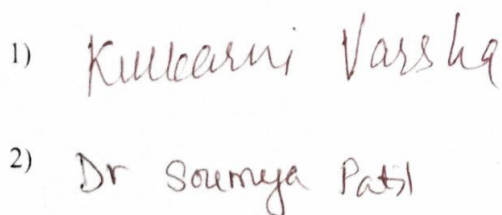 1) Kulkarni Varsha
2) Dr Soumya Patil